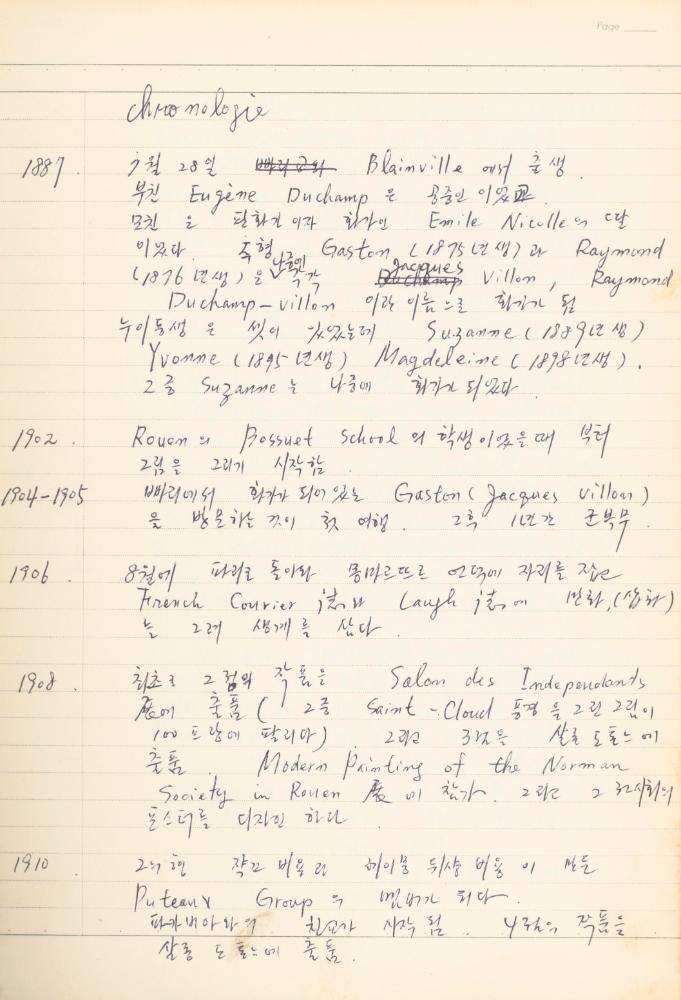 Page
chronologie
1887. 7월 28일 Blainville 에서 출생.
부친 Eugène Duchamp 은 공증인 이었고
모친 은 판화가 이자 화가인 Emile Nicolle의 딸
이었다. Gaston (1875년생)과 Raymond
(1876년생)은 나중에 각각 Jacques Villon, Raymond
Duchamp-villon 이란 이름으로 화가가 됨
누이동생 은 셋이 있었는데 Suzanne (1889년생)
Yvonne (1895년생) Magdeleine (1898년생).
그중 Suzanne 는 나중에 화가가 되었다
1902. Rouen 의 Bossuet School 의 학생이었을때 부터
그림을 그리기 시작함
1904-1905 빠리에서 화가가 되어있는 Gaston (Jacques Villon)
을 방문하는 것이 첫 여행. 그후 1년간 군복무.
1906. 8월에 파리로 돌아와 몽마르뜨르 언덕에 자리를 잡고
French Courier 誌와 Laugh 誌에 만화, (삽화)
를 그려 생계를 삼다.
1908. 최초로 그림의 작품을 Salon des Independants
展에 출품 (그중 Saint-Cloud 풍경을 그린 그림이
100프랑에 팔리다) 그리고 3점을 살롱도톤느에
출품. Modern Painting of the Norman
Society in Rouen 展에 참가. 그리고 그 전시회의
포스터를 디자인 하다.
1910. 그의 형 쟈끄 비용과 레이몽 뒤샹 비용이 만든
Puteaux Group 의 멤버가 되다.
피카비아와의 친교가 시작됨. 4점의 작품을
살롱 도 톤느에 출품.